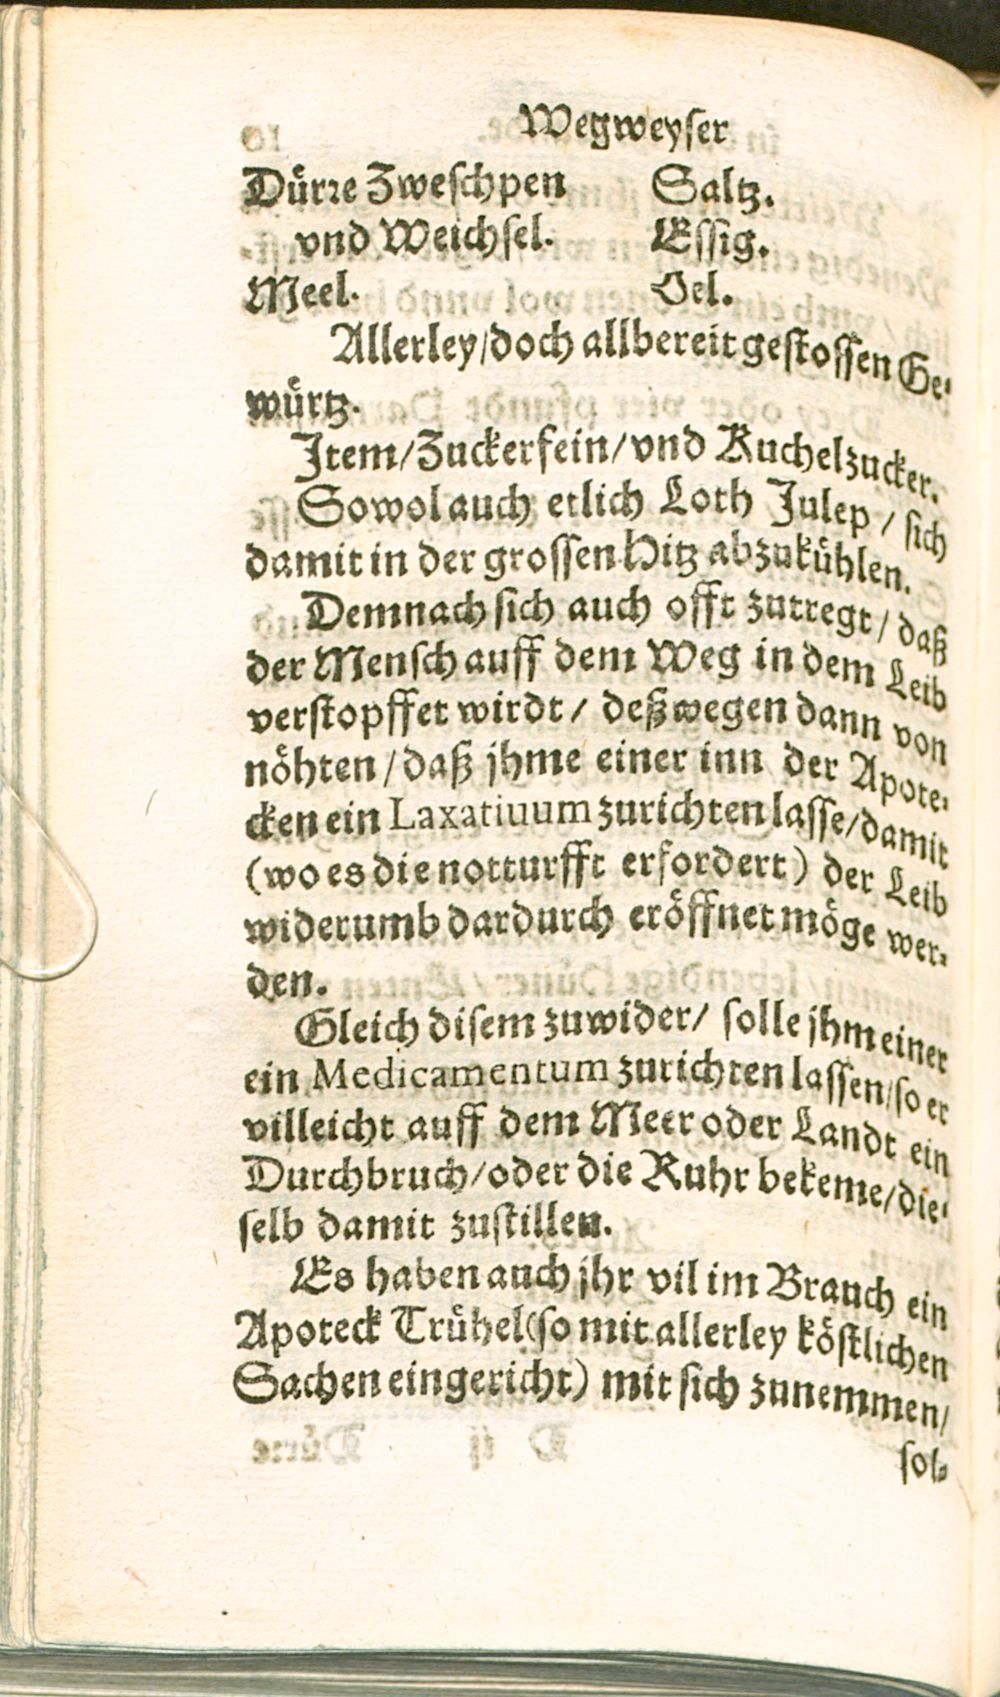 Wegweyser
Dürre Zweschpen
vnd Weichsel.
Meel.
Saltz.
Essig.
Oel.
Allerley/doch allbereit gestossen Ge-
würtz.
Jtem/Zucker fein/vnd Kuchelzucker.
Sowol auch etlich Loth Julep / sich
damit in der grossen Hitz abzukühlen.
Demnach sich auch offt zutregt/ daß
der Mensch auff dem Weg in dem Leib
verstopffet wirdt / deßwegen dann von
nöhten /daß jhme einer inn der Apote-
cken ein Laxatiuum zurichten lasse/damit
(wo es die notturfft erfordert) der Leib
widerumb dardurch eröffnet möge wer-
den.
Gleich disem zuwider/ solle jhm einer
ein Medicamentum zurichten lassen/so er
villeicht auff dem Meer oder Landt ein
Durchbruch/oder die Ruhr bekeme/die-
selb damit zustillen.
Es haben auch jhr vil im Brauch ein
Apoteck Trühel(so mit allerley köstlichen
Sachen eingericht) mit sich zunemmen/
sol-